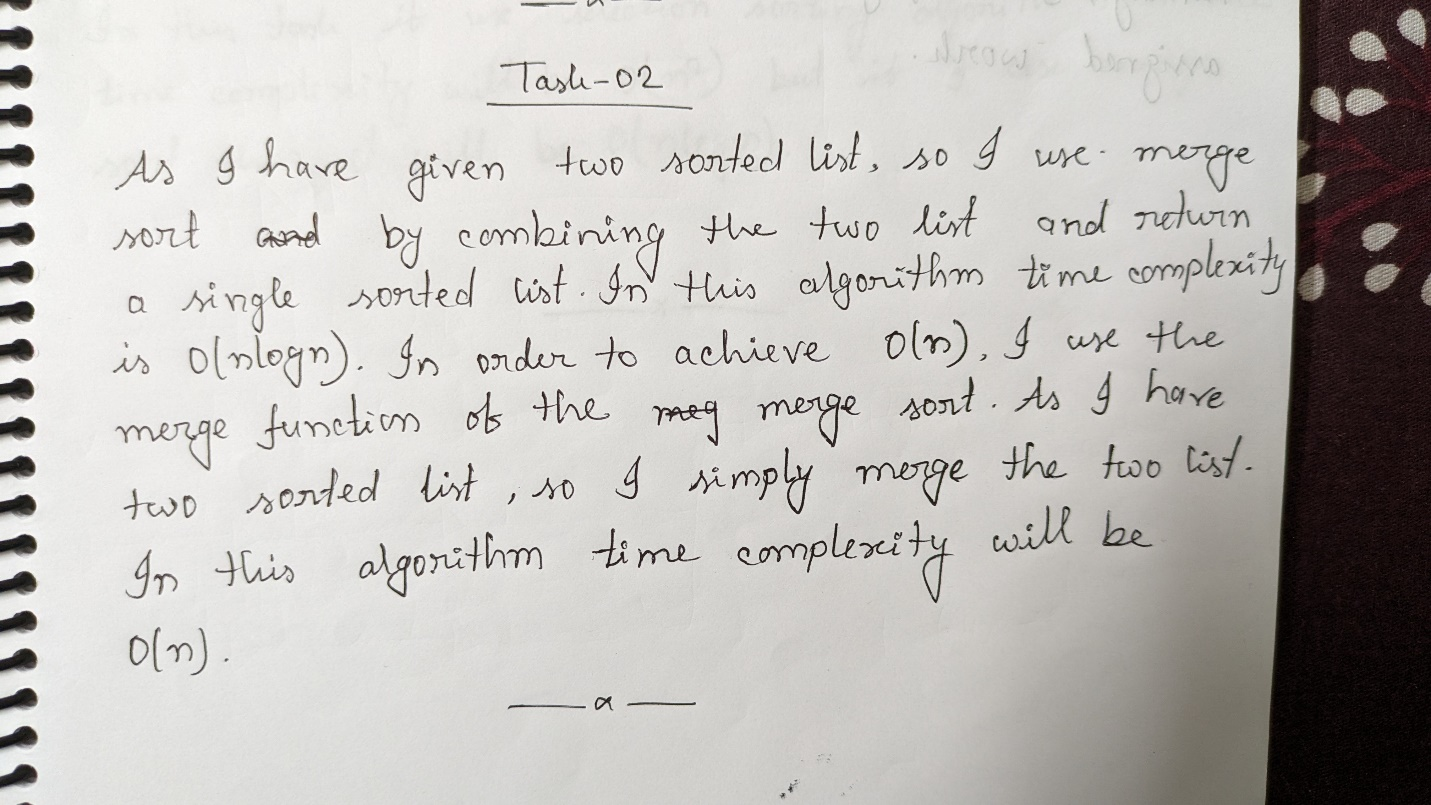 Task-02
As I have given two sorted list, so I use merge
sort and by combining the two list and return
a single sorted list. In this algorithm time complexity
is O(nlogn). In order to achieve O(n), I use the
merge function of the meg merge sort. As I have
two sorted list, so I simply merge the two list.
In this algorithm time complexity will be
O(n).